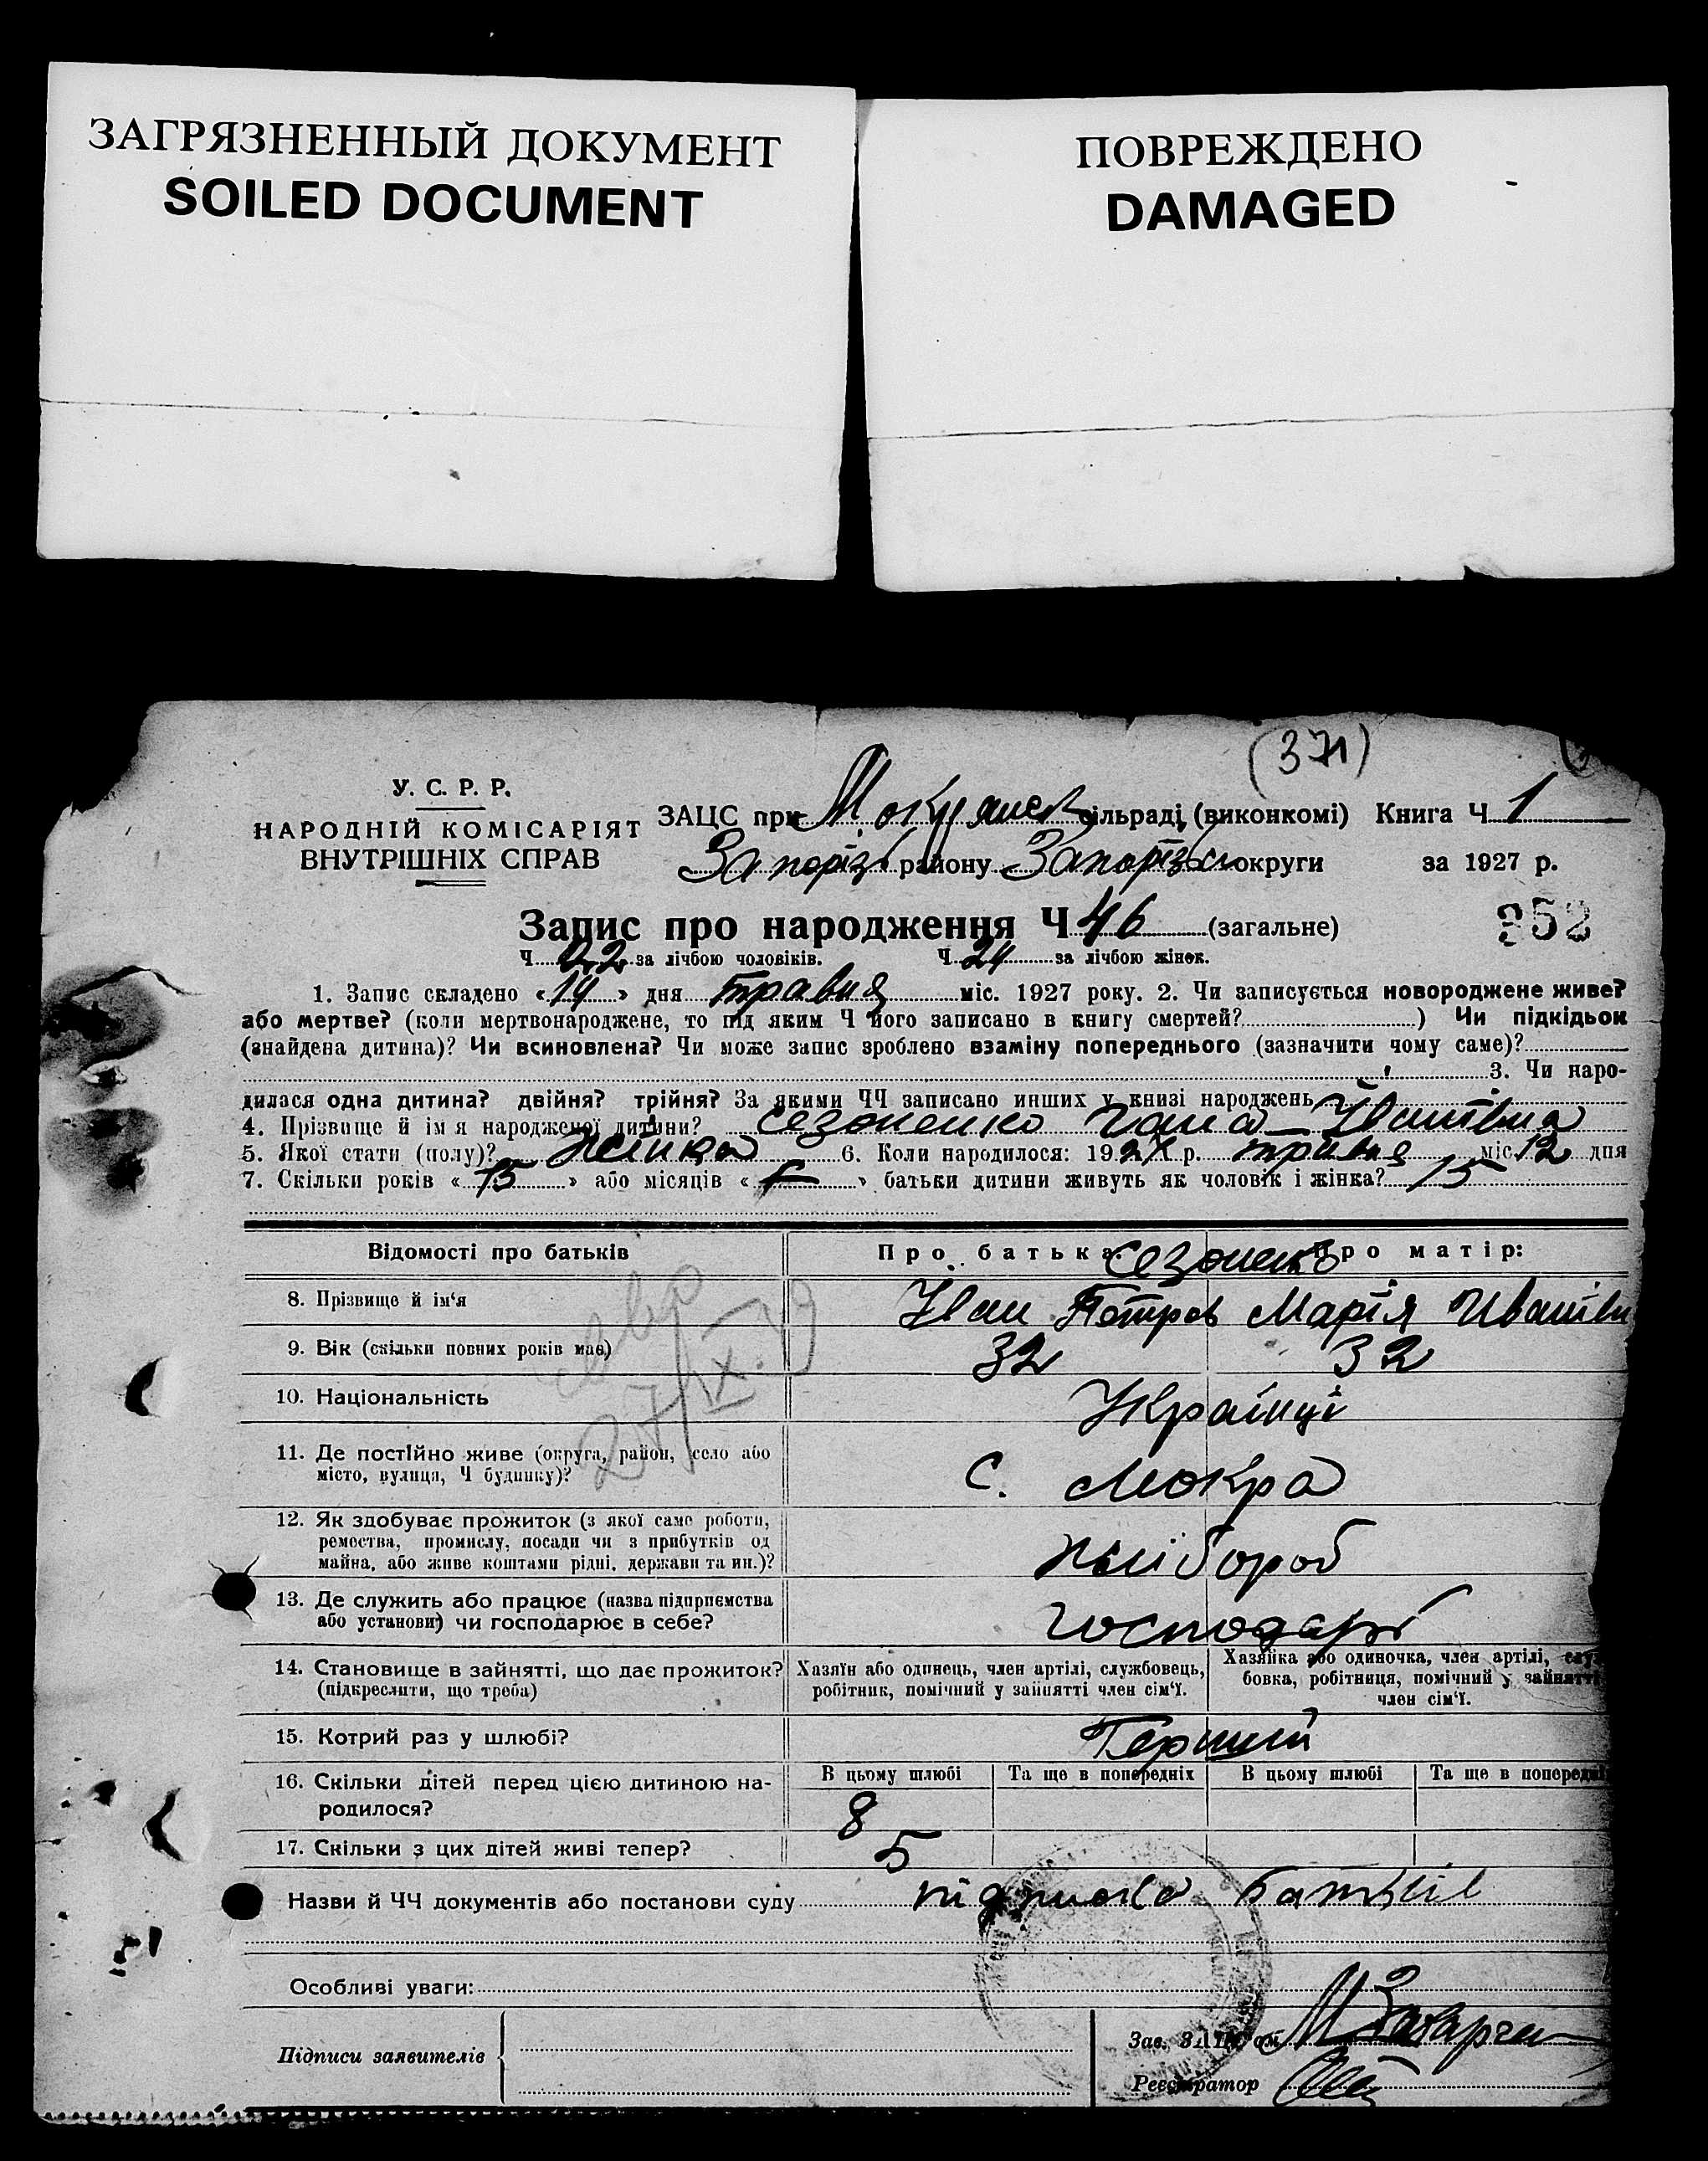 ЗАГРЯЗНЕННЫЙ ДОКУМЕНТ
SOILED DOCUMENT
ПОВРЕЖДЕНО
DAMAGED
(371)
У. С. Р. Р.
НАРОДНІЙ КОМІСАРІЯТ
ВНУТРІШНІХ СПРАВ
ЗАЦС при сільраді (виконкомі) Книга Ч 1
Запоріз району Запорізьк округи за 1927 р.
Запис про народження Ч 46 (загальне)
352
Ч 22 за лічбою чоловіків. Ч 24 за лічбою жінок.
1. Запис складено «14» дня травня міс. 1927 року. 2. Чи записується новороджене живе?
або мертве? (коли мертвонароджене, то під яким Ч його записано в книгу смертей? ) Чи підкідьок
(знайдена дитина)? Чи всиновлена? Чи може запис зроблено взаміну попереднього (зазначити чому саме)?
3. Чи наро-
дилася одна дитина? двійня? трійня? За якими ЧЧ записано инших у книзі народжень
4. Прізвище й імя народженої дитини? Сезоненко Ганна Іванівна
5. Якої стати (полу)? Жінка 6. Коли народилося: 1927 р. травня міс. 12 дня
7. Скільки років «15» або місяців « » батьки дитини живуть як чоловік і жінка? 15
Відомості про батьків
Про батька: Сезоненко Про матір:
8. Прізвище й ім'я
Іван Петров Марія Иванівн
9. Вік (скільки повних років має)
32 32
27/IX.
10. Національність
Українці
11. Де постійно живе (округа, район, село або
місто, вулиця, Ч будинку)?
С. Мокра
12. Як здобуває прожиток (з якої саме роботи,
ремества, промислу, посади чи з прибутків од
майна, або живе коштами рідні, держави та ин.)?
Хлібороб
13. Де служить або працює (назва підприємства
або установи) чи господарює в себе?
господарі
14. Становище в зайнятті, що дає прожиток?
(підкреслити, що треба)
Хазяїн або одинець, член артілі, службовець,
робітник, помічний у зайнятті член сім'ї.
Хазяйка або одиночка, член артілі, служ
бовка, робітниця, помічний у зайнятті
член сім'ї.
15. Котрий раз у шлюбі?
Перший
16. Скільки дітей перед цією дитиною на-
родилося?
В цьому шлюбі Та ще в попередніх В цьому шлюбі Та ще в попередні
8
17. Скільки з цих дітей живі тепер?
5
Назви й ЧЧ документів або постанови суду підписка батьків
Особливі уваги:
Підписи заявителів
Зав. ЗАЦС'ом
Реєстратор